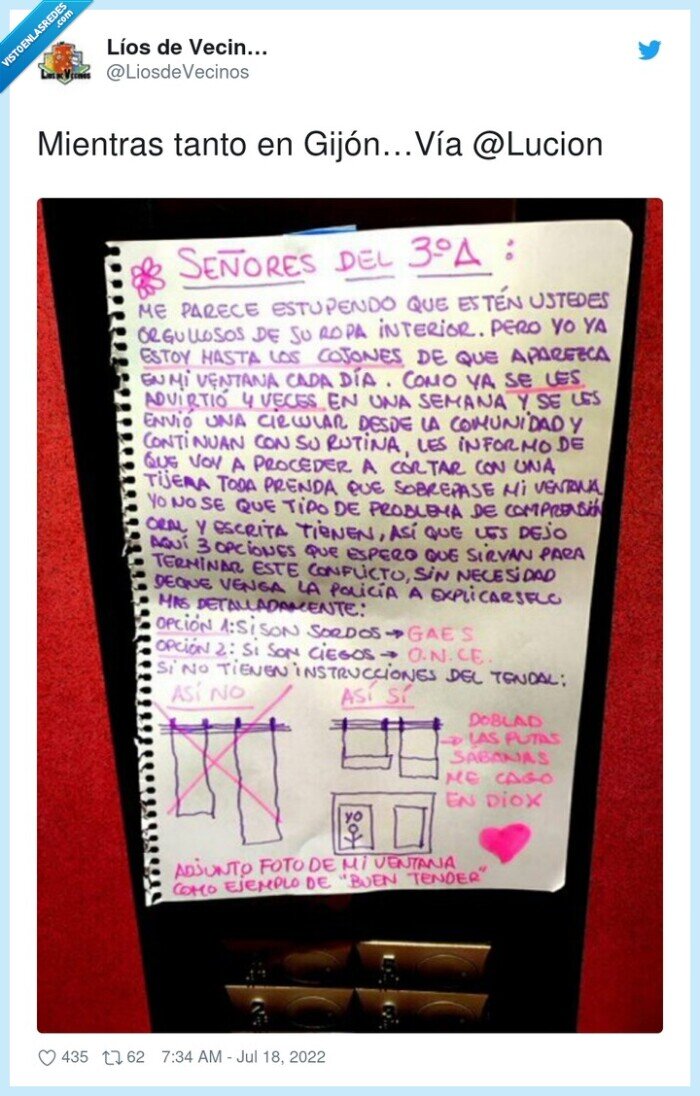 VISTOENLASREDES
.com
Líos de Vecin...
@LiosdeVecinos
Mientras tanto en Gijón...Vía @Lucion
SEÑORES DEL 3ºA :
ME PARECE ESTUPENDO QUE ESTÉN USTEDES
ORGULLOSOS DE SU ROPA INTERIOR. PERO YO YA
ESTOY HASTA LOS COJONES DE QUE APAREZCA
EN MI VENTANA CADA DÍA. COMO YA SE LES
ADVIRTIÓ 4 VECES EN UNA SEMANA Y SE LES
ENVIÓ UNA CIRCULAR DESDE LA COMUNIDAD Y
CONTINUAN CON SU RUTINA, LES INFORMO DE
QUE VOY A PROCEDER A CORTAR CON UNA
TIJERA TODA PRENDA QUE SOBREPASE MI VENTANA
YO NO SE QUE TIPO DE PROBLEMA DE COMPRENSIÓN
ORAL Y ESCRITA TIENEN, ASÍ QUE LES DEJO
AQUÍ 3 OPCIONES QUE ESPERO QUE SIRVAN PARA
TERMINAR ESTE CONFLICTO, SIN NECESIDAD
DE QUE VENGA LA POLICÍA A EXPLICARSELO
MAS DETALLADAMENTE:
OPCIÓN 1: SI SON SORDOS → GAES
OPCIÓN 2: SI SON CIEGOS → O.N.CE.
SI NO TIENEN INSTRUCCIONES DEL TENDAL:
ASÍ NO
ASÍ SÍ
DOBLAD
→ LAS PUTAS
SABANAS
ME CAGO
EN DIOX
YO
ADJUNTO FOTO DE MI VENTANA
COMO EJEMPLO DE "BUEN TENDER"
435 62 7:34 AM - Jul 18, 2022